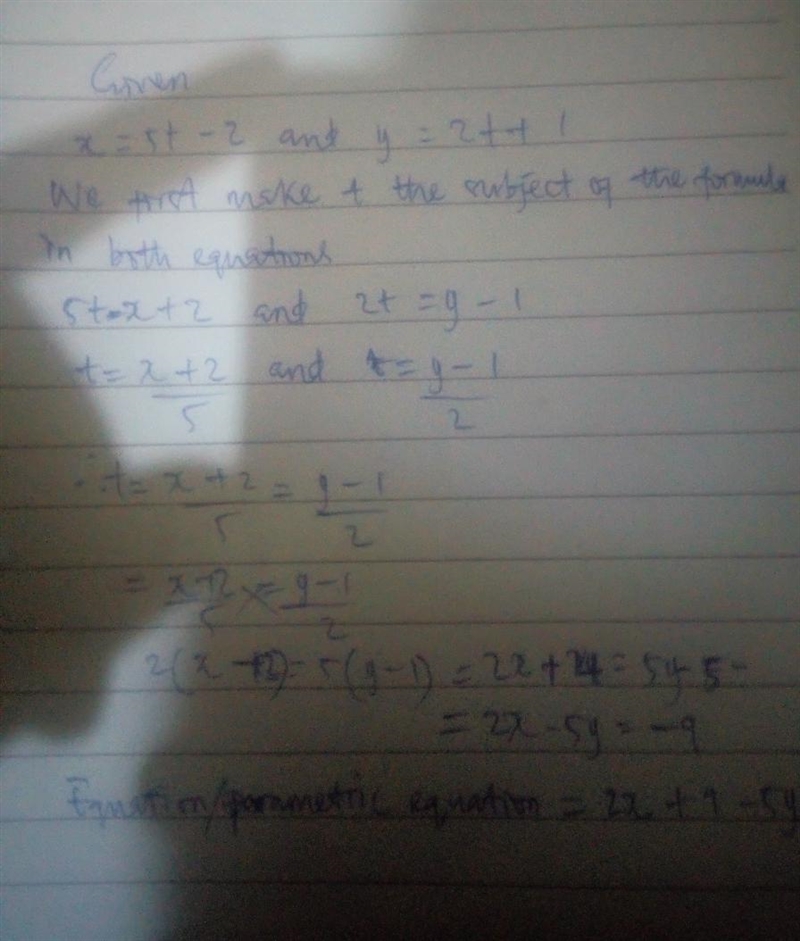 Given
x = 5t - 2 and y = 2t + 1
We first make t the subject of the formula
in both equations
5t = x + 2 and 2t = y - 1
t = x + 2 / 5 and t = y - 1 / 2
∴ t = x + 2 / 5 = y - 1 / 2
= x + 2 / 5 = y - 1 / 2
2(x + 2) = 5(y - 1) = 2x + 4 = 5y - 5 =
= 2x - 5y = -9
Equation/parametric equation = 2x + 9 - 5y